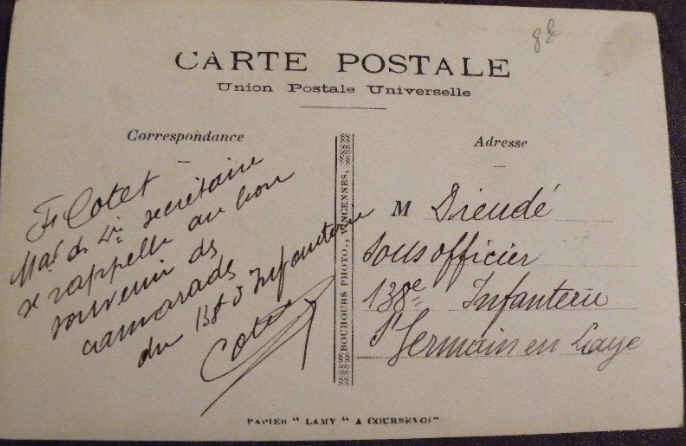 8E
CARTE POSTALE
Union Postale Universelle
Correspondance
F Cotet
Mal ds Lis secrétaire
se rappelle au bon
souvenir ds
camarads
du 138 d'Infanterie
Cotet
BOUHOURS PHOTO., VINCENNES,
Adresse
M Dieudé
sous officier
138e Infanterie
St Germain en Laye
PAPIER " LAMY " A COURBEVOIE